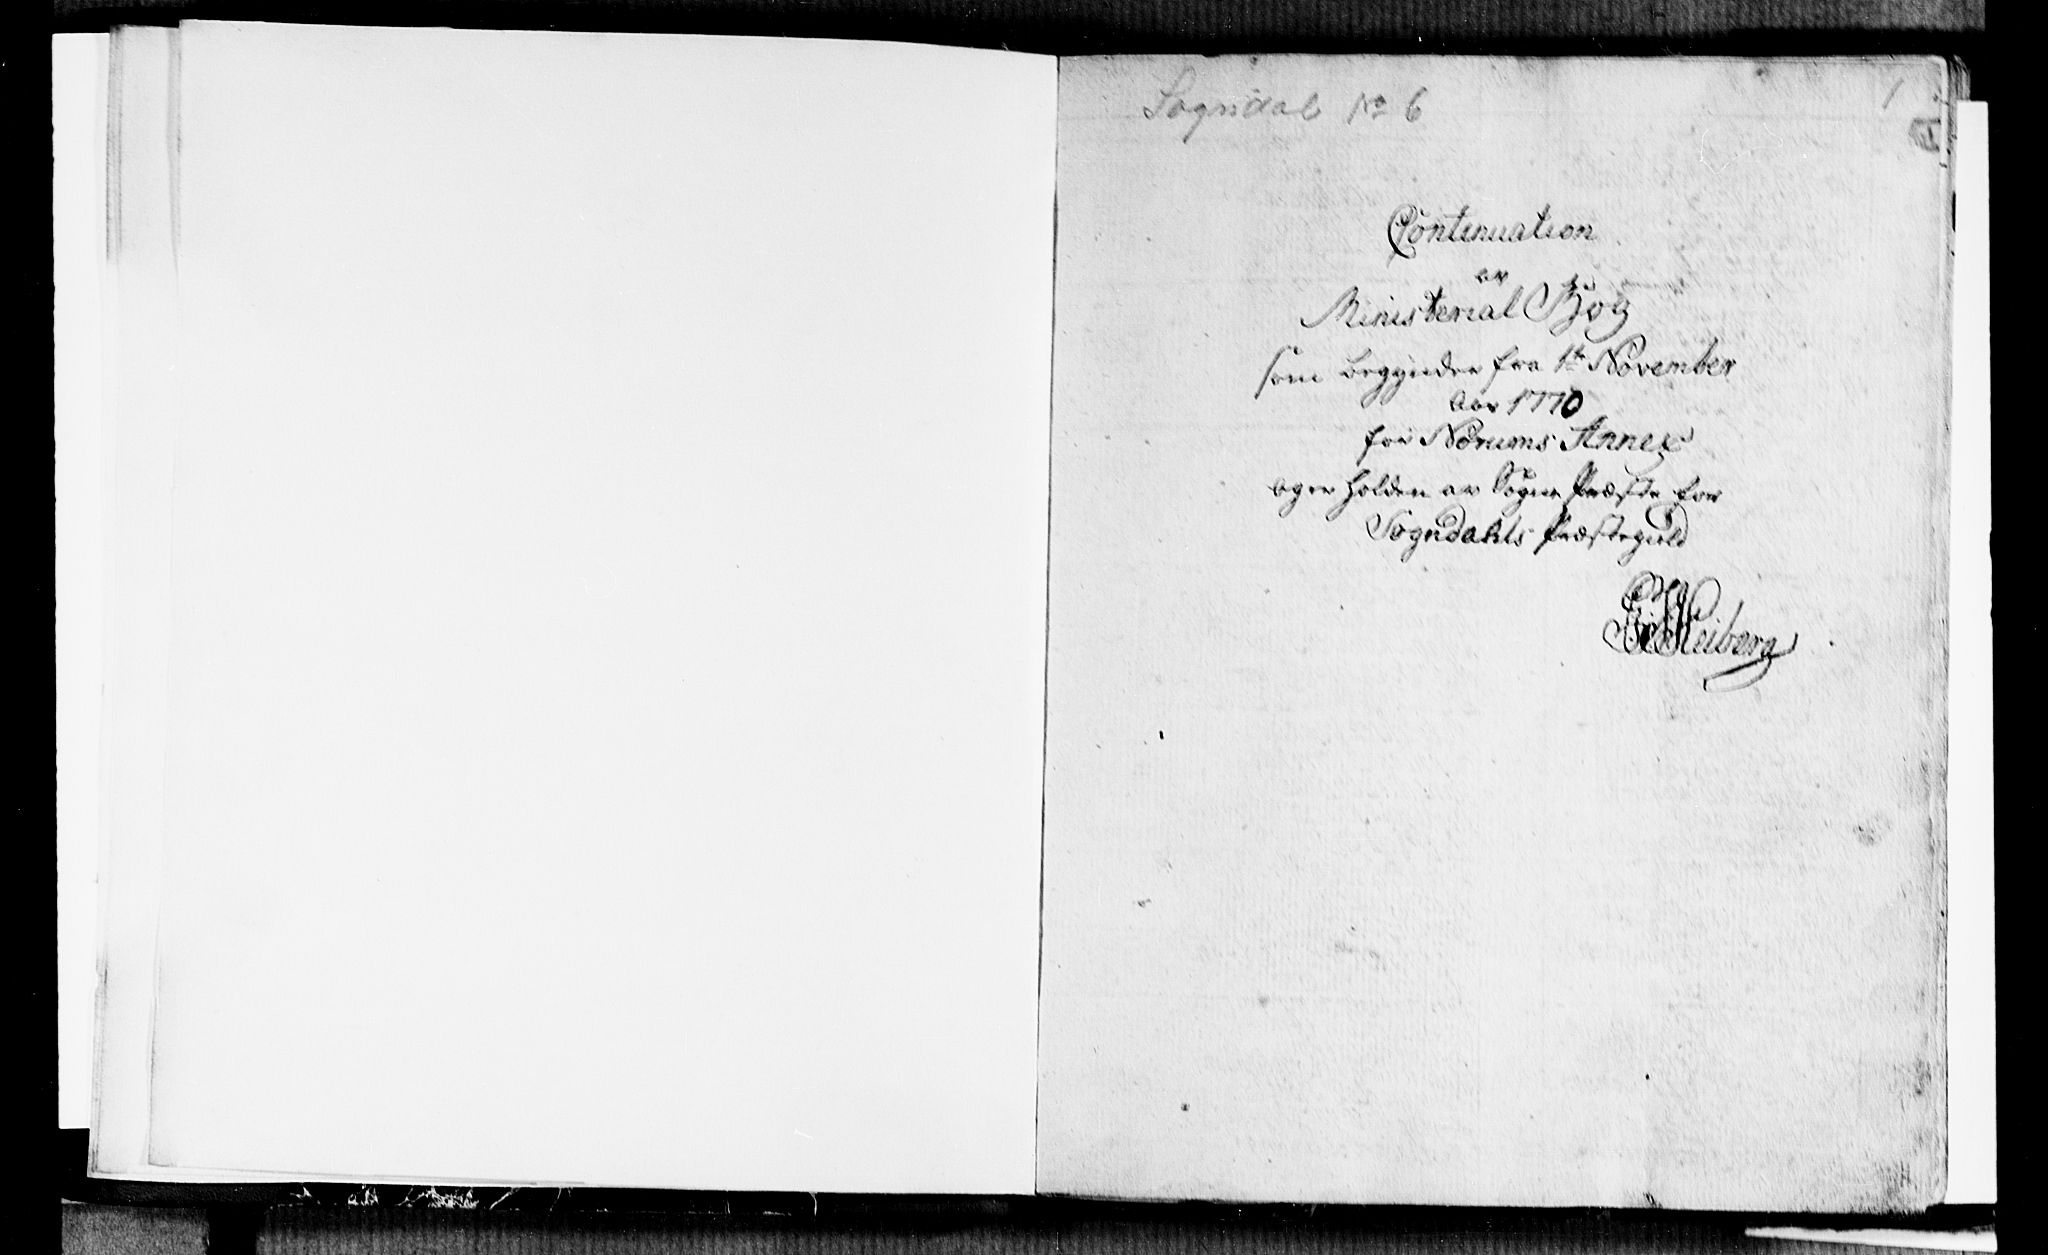 Sogndal No 6
1
Contenuation
av
Ministerial Bog
som begynder fra 1te November
Aar 1770
for Norums Annex
og er holden av Sogne Præste for
Sogndahls Præstegield
Heiberg